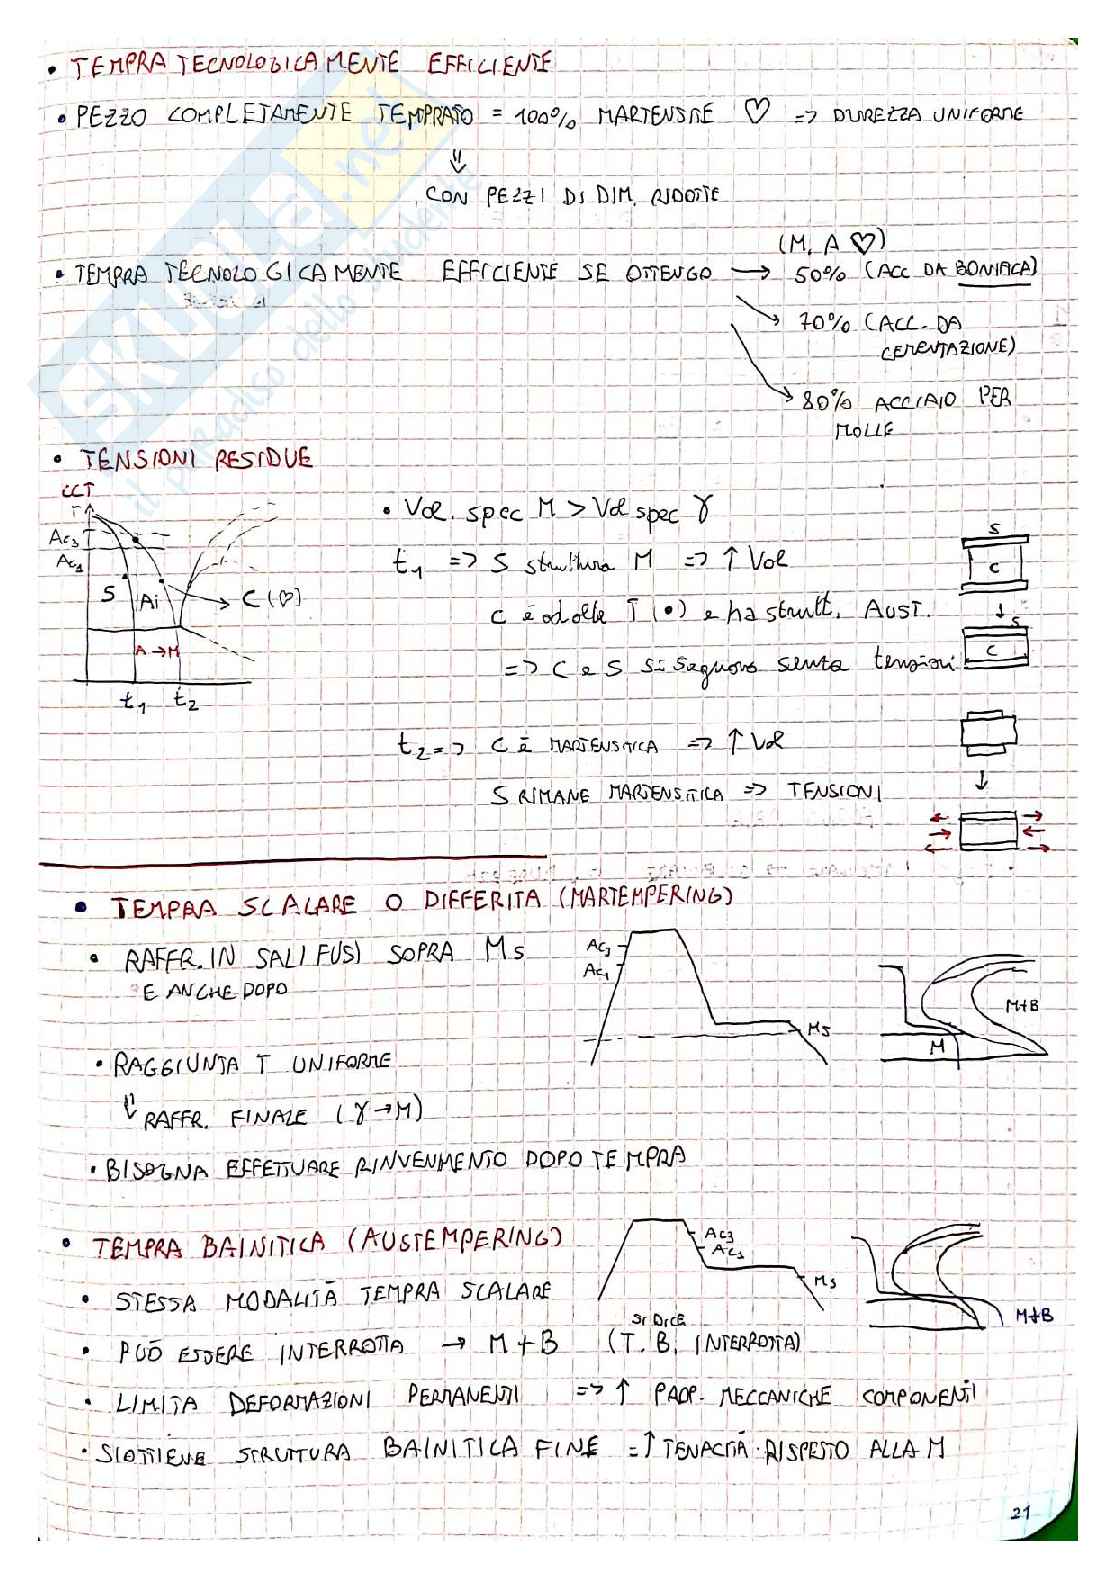 • TEMPRA TECNOLOGICAMENTE EFFICIENTE
• PEZZO COMPLETAMENTE TEMPRATO = 100% MARTENSITE ♡ => DUREZZA UNIFORME
⇓
CON PEZZI DI DIM. RIDOTTE
(M. A ♡)
• TEMPRA TECNOLOGICAMENTE EFFICIENTE SE OTTENGO → 50% (ACC DA BONIFICA)
→ 70% (ACC. DA
CEMENTAZIONE)
→ 80% ACCIAIO PER
MOLLE
• TENSIONI RESIDUE
CCT
T
Ac3
Ac1
S
Ai
C (♡)
A→M
t1 t2
• Vol. spec M > Vol spec γ
t1 => S struttura M => ↑ Vol
C è ad alte T (•) e ha strutt. AUST.
=> C e S si seguono senza tensioni
t2 => C È MARTENSITICA => ↑ Vol
S RIMANE MARTENSITICA => TENSIONI
S
C
S
C
• TEMPRA SCALARE O DIFFERITA (MARTEMPERING)
• RAFFR. IN SALI FUSI SOPRA Ms
E ANCHE DOPO
• RAGGIUNTA T UNIFORME
⇓ RAFFR. FINALE (γ→M)
• BISOGNA EFFETTUARE RINVENIMENTO DOPO TEMPRA
Ac3
Ac1
Ms
M+B
M
• TEMPRA BAINITICA (AUSTEMPERING)
• STESSA MODALITÀ TEMPRA SCALARE
SI DICE
• PUÒ ESSERE INTERROTTA → M + B (T. B. INTERROTTA)
• LIMITA DEFORMAZIONI PERMANENTI => ↑ PROP. MECCANICHE COMPONENTI
• SI OTTIENE STRUTTURA BAINITICA FINE = ↑ TENACITÀ RISPETTO ALLA M
Ac3
Ac1
Ms
M+B
21
SKUOLA.net